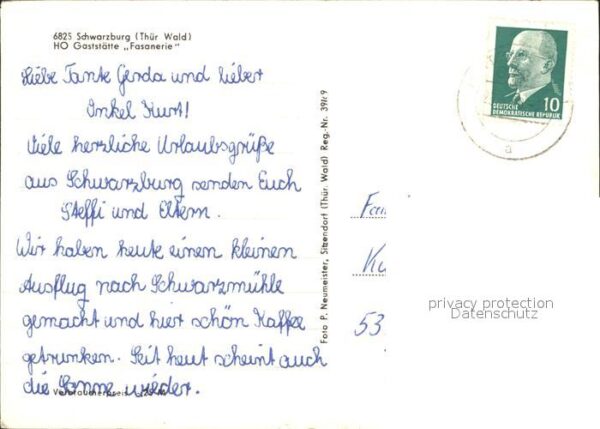 6825 Schwarzburg (Thür Wald)
HO Gaststätte „Fasanerie"
Liebe Tante Gerda und lieber
Onkel Kurt!
Viele herzliche Urlaubsgrüße
aus Schwarzburg senden Euch
Steffi und Eltern.
Wir haben heute einen kleinen
Ausflug nach Schwarzmühle
gemacht und hier schön Kaffee
getrunken. Seit heut scheint auch
die Sonne wieder.
Verbraucherpreis
Foto P. Neumeister, Sitzendorf (Thür. Wald) Reg.-Nr.
10
DEUTSCHE
DEMOKRATISCHE REPUBLIK
a
Fam
53
privacy protection
Datenschutz